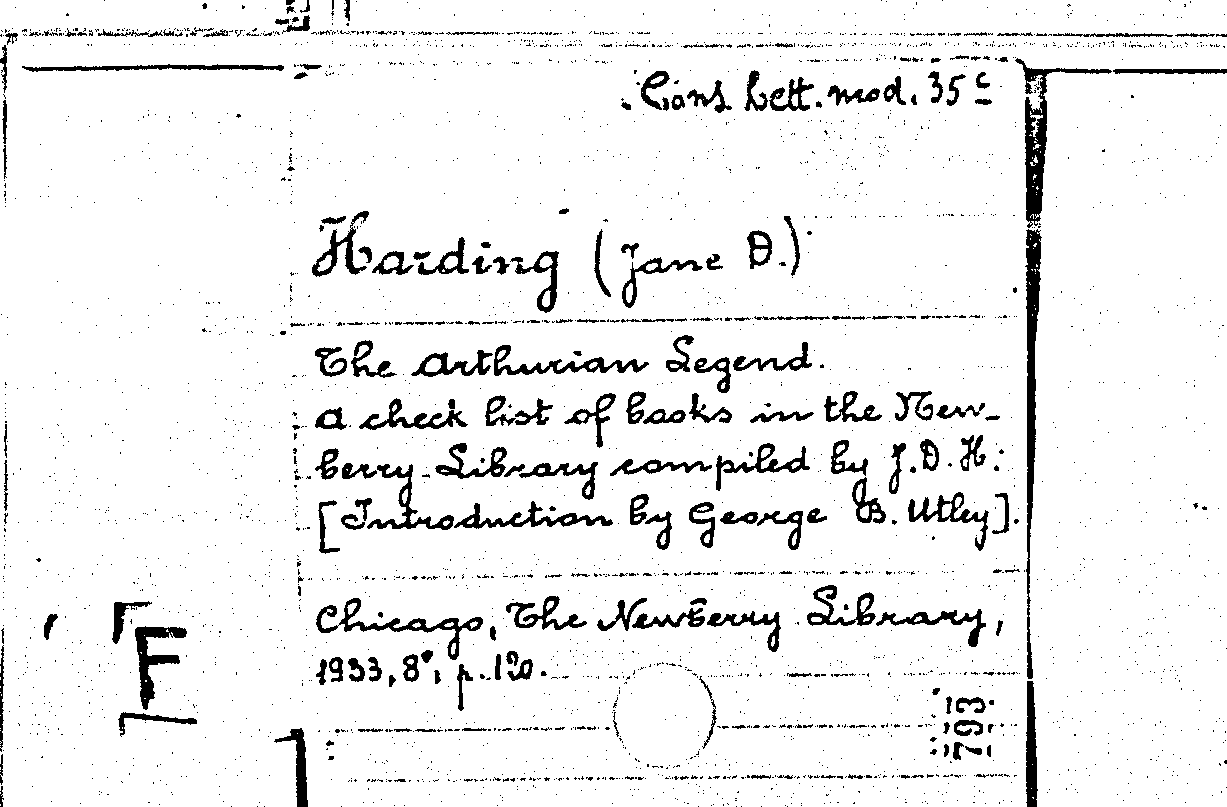 Cons. Lett. mod. 35 c
Harding (Jane D.)
The Arthurian Legend.
A check list of books in the New-
berry Library compiled by J.D.H.
[Introduction by George B. Utley].
Chicago, The Newberry Library,
1933, 8°, p. 120.
793
F